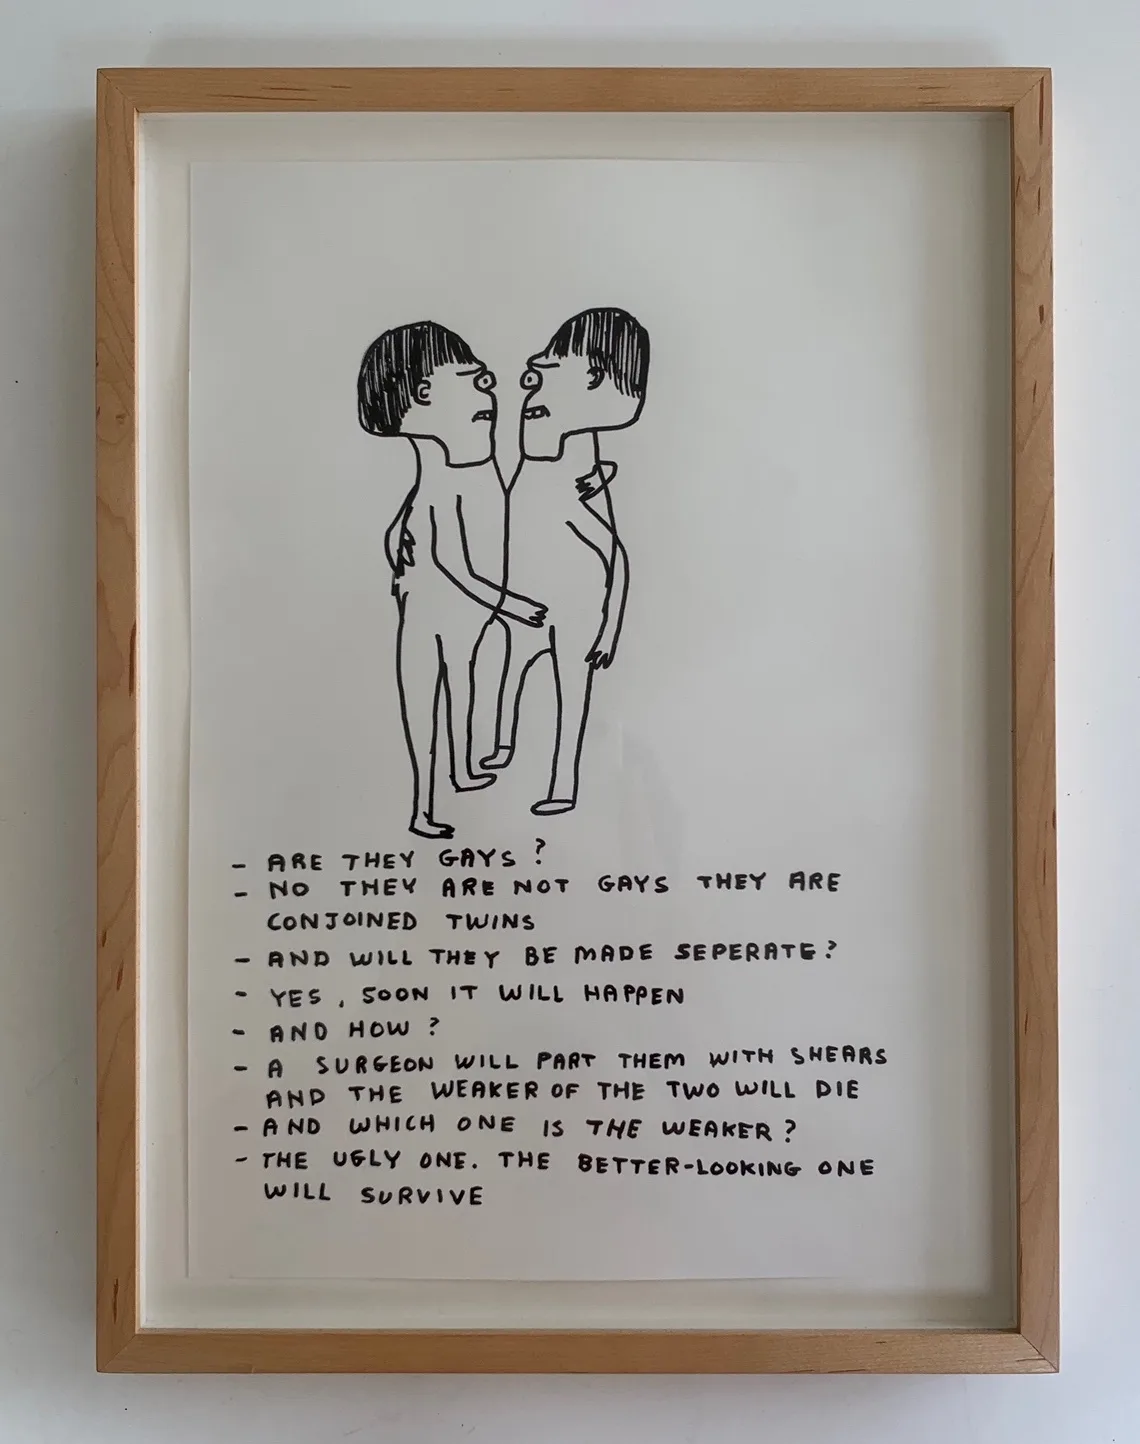 - ARE THEY GAYS?
- NO THEY ARE NOT GAYS THEY ARE
CONJOINED TWINS
- AND WILL THEY BE MADE SEPERATE?
- YES, SOON IT WILL HAPPEN
- AND HOW?
- A SURGEON WILL PART THEM WITH SHEARS
AND THE WEAKER OF THE TWO WILL DIE
- AND WHICH ONE IS THE WEAKER?
- THE UGLY ONE. THE BETTER-LOOKING ONE
WILL SURVIVE